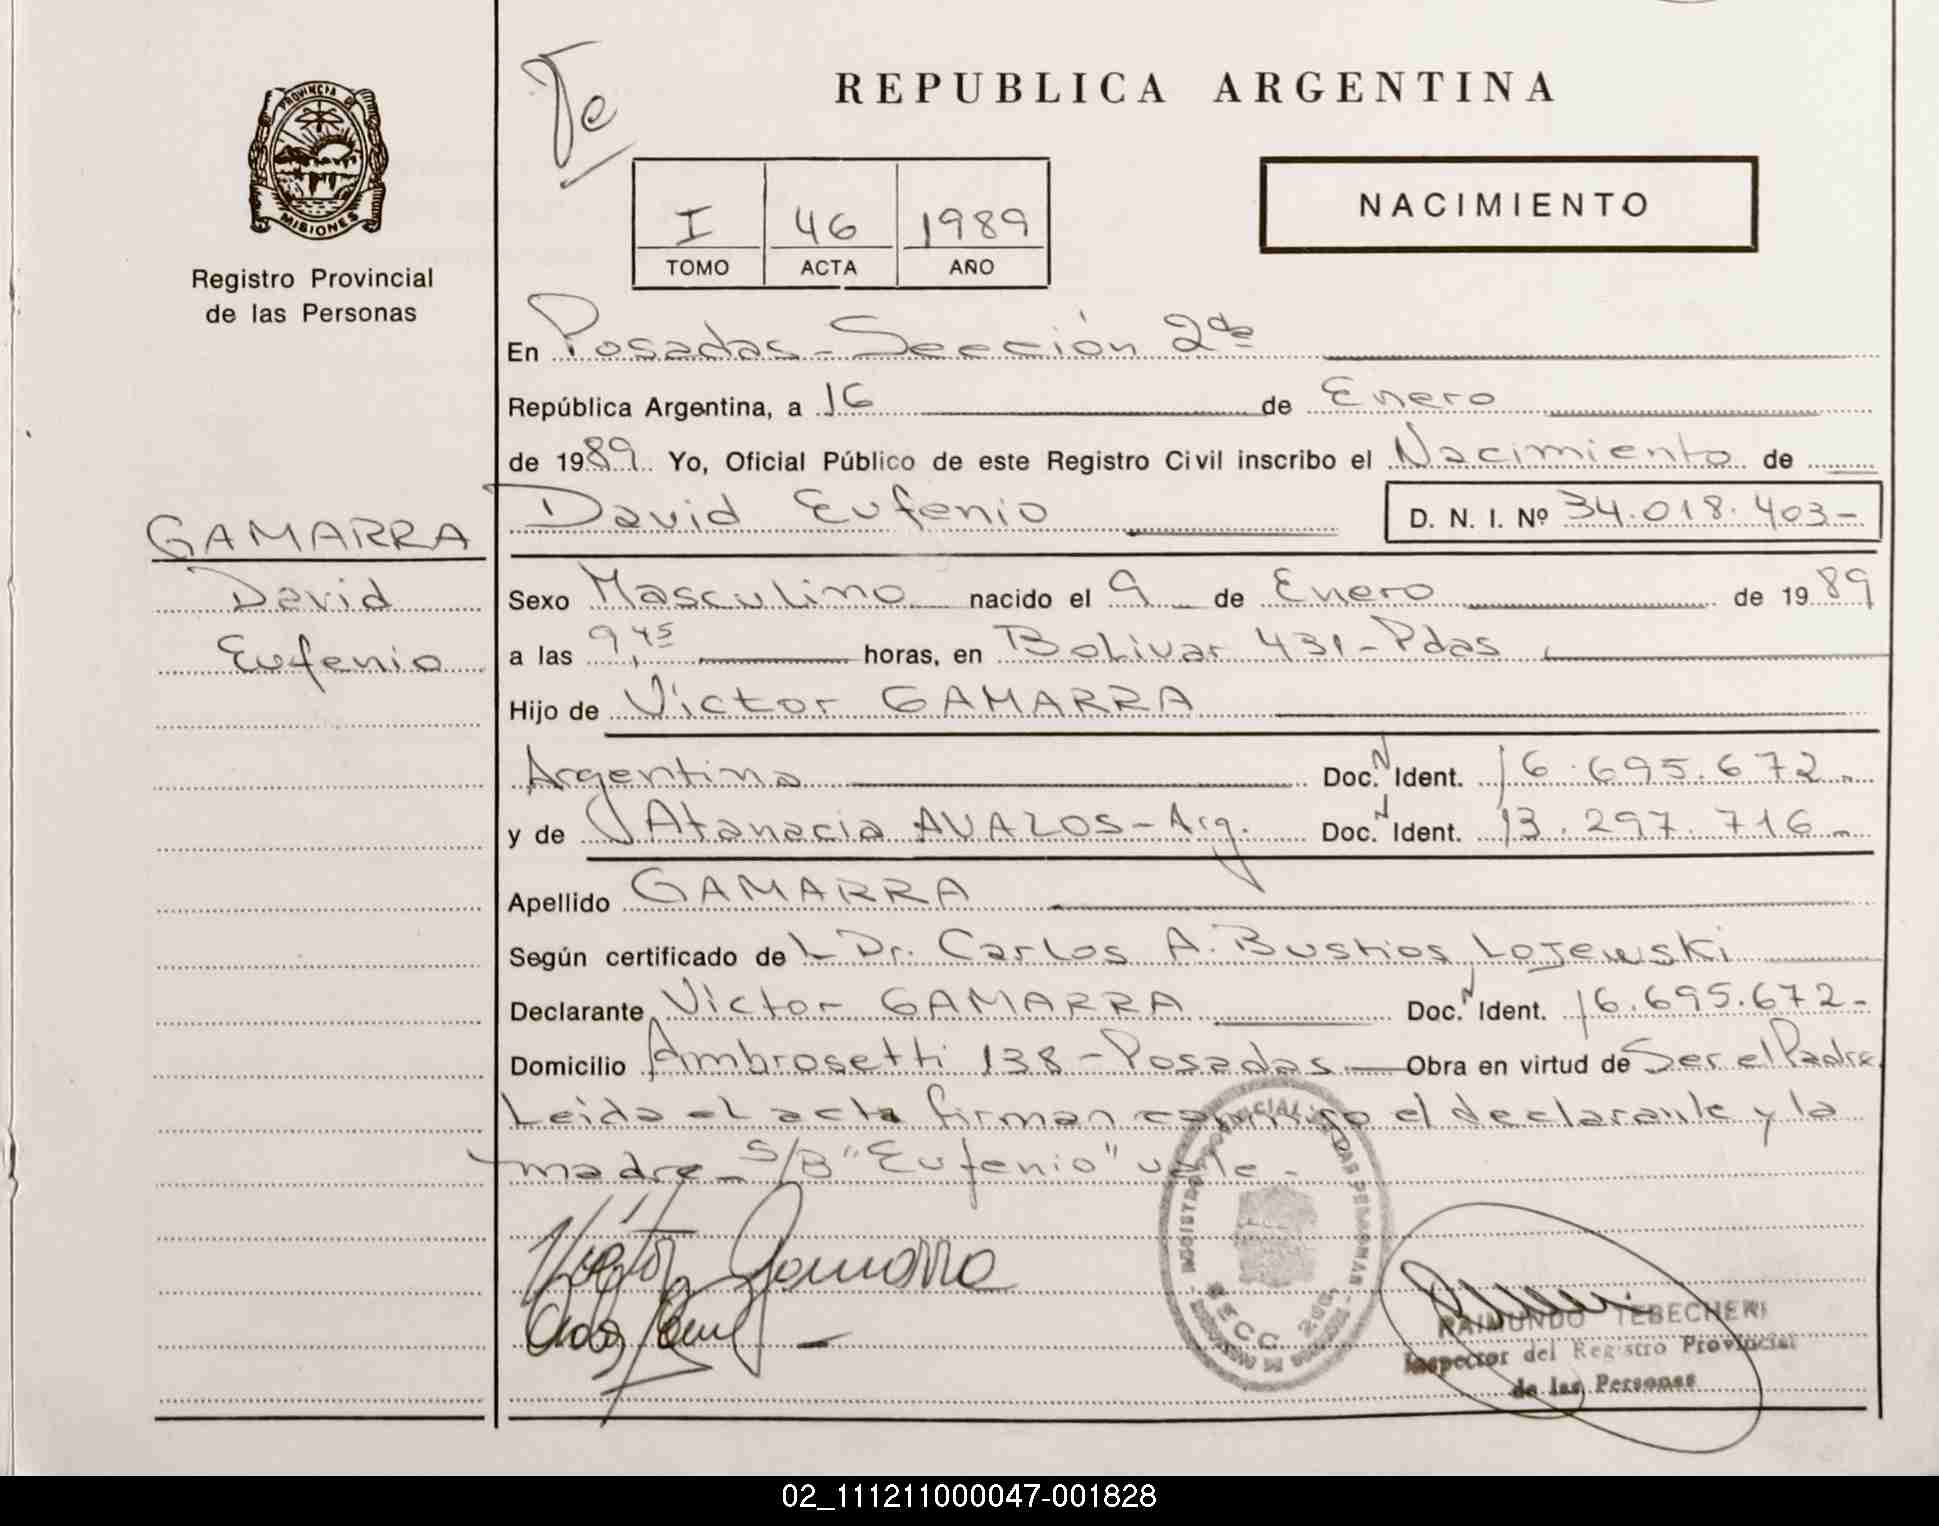 Te
REPUBLICA ARGENTINA
PROVINCIA DE
MISIONES
Registro Provincial
de las Personas
I 46 1989
TOMO ACTA AÑO
NACIMIENTO
En Posadas - Sección 2da
República Argentina, a 16 de Enero
de 1989. Yo, Oficial Público de este Registro Civil inscribo el Nacimiento de
David Eufenio D. N. I. Nº 34.018.403-
GAMARRA
David
Eufenio
Sexo Masculino nacido el 9 de Enero de 1989
a las 9,45 horas, en Bolivar 431 - Pdas
Hijo de Victor GAMARRA
Argentino Doc. N Ident. 16.695.672.-
y de Atanacia AVALOS - Arg. Doc. N Ident. 13.297.716-
Apellido GAMARRA
Según certificado de L Dr. Carlos A. Bustios Lojewski
Declarante Victor GAMARRA Doc. N Ident. 16.695.672-
Domicilio Ambrosetti 138 - Posadas Obra en virtud de Ser el Padre
Leida el acta firman conmigo el declarante y la
madre - S/B "Eufenio" vale -
Victor Gamarra
SECC. 2da.
RAIMUNDO TEBECHERI
Inspector del Registro Provincial
de las Personas
02_111211000047-001828